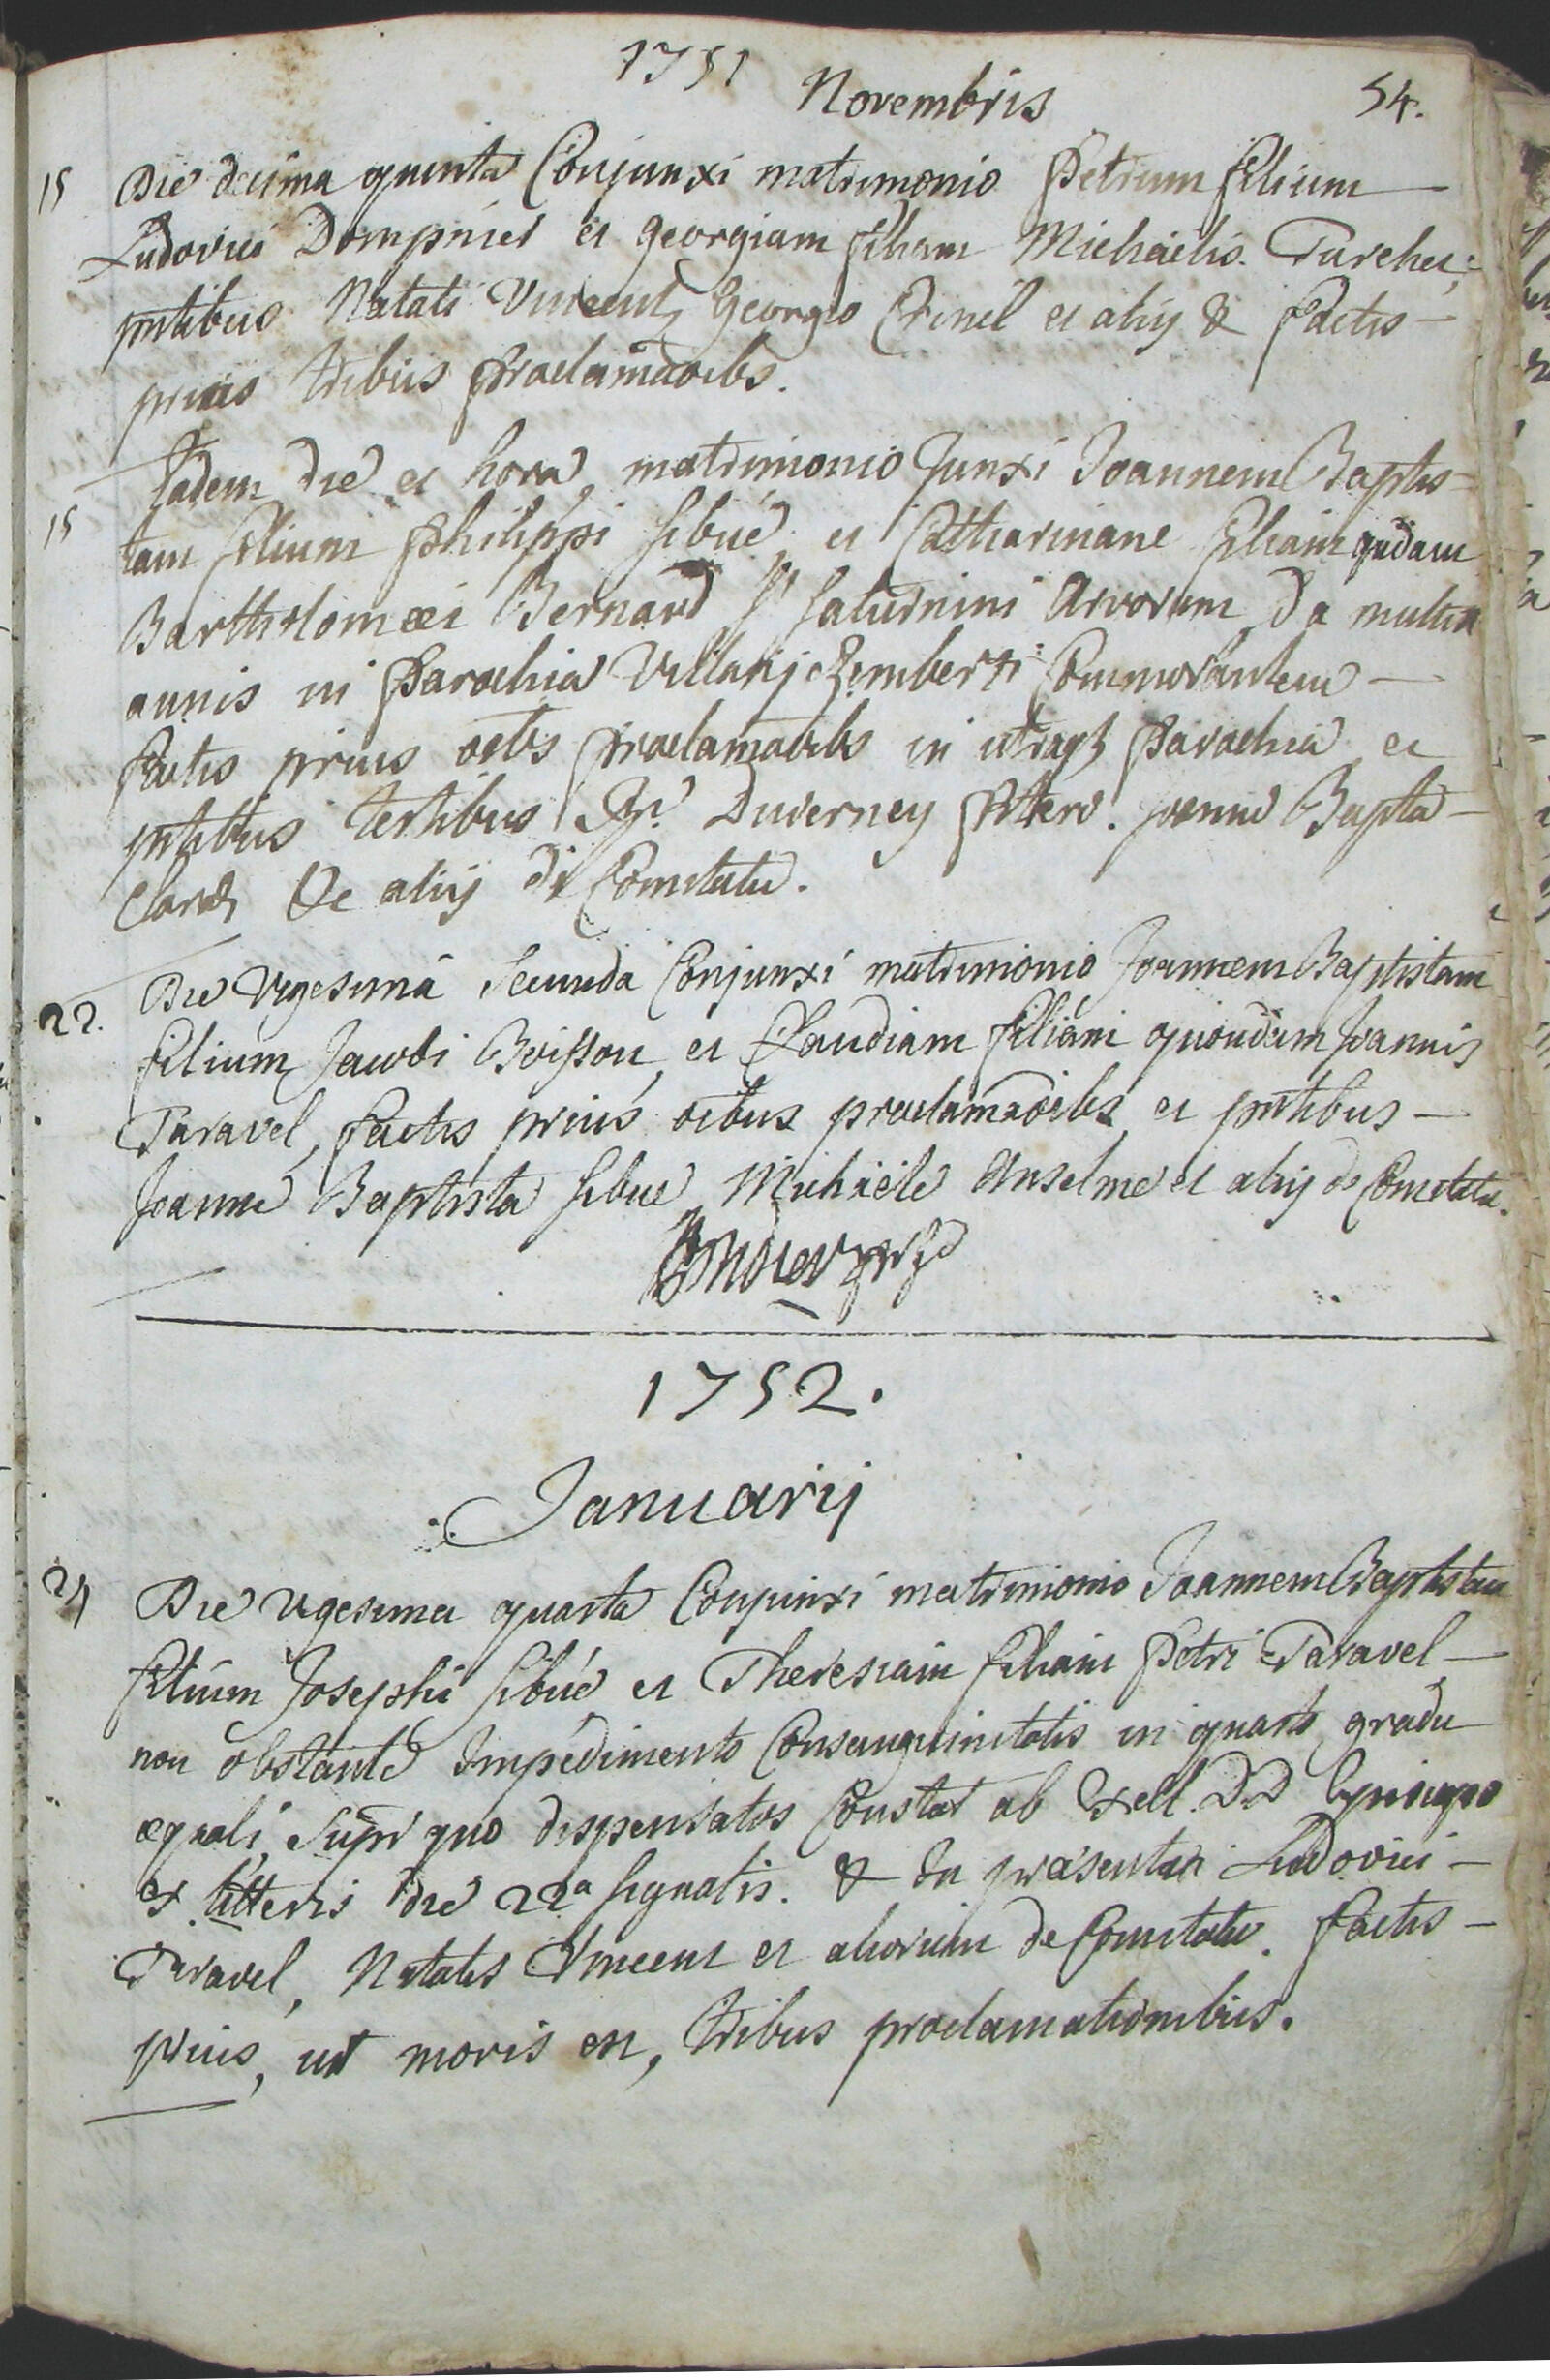 1751
Novembris
54.
15 Die decima quinta Conjunxi matrimonio Petrum filium
Ludovici Dompnier et georgiam filiam Michaelis Turchet;
pntibus Natali Vincent, Georgio Crinel et alijs & factis
prius tribus proclamaoibs.
Eadem die et hora matrimonio Junxi Joannem Baptis-
15 tam filium philippi sibué, et Catharinane filiam qudam
Bartholomaei Bernard Sti Saturnini Arvorum Da multis
annis in Parochia Villarij Zemberti Commorantem
factis prius oetbs proclamaoibs in utraqz Parochia et
pntibus testibus Rd Duverney Ptero. joanne Bapta
Claraz &c alijs de Comitatu.
22. Die Vigesima Secunda Conjunxi matrimonio Joannem Baptistam
filium Jacobi Boisson, et Claudiam filiam quondam Joannis
Taravel, factis prius oibus proclamaoibs, et pntibus
Joanne Baptista sibue, Michaele Anselme et alijs de Comitatu.
1752.
Januarij
24 Die vigesima quarta Conjunxi matrimonio Joannem Baptistam
filium Josephi sibué et Theresiam filiam Petri Taravel
non obstante Impedimento Consanguinitatis in quarto gradu
aequali, Super quo dispensatos Constat ab Exell. DD Episcopo
ex litteris die 22a signatis. & In praesentia Ludovici
Taravel, Natalis Vincent et aliorum de Comitatu. factis
prius, ut moris est, tribus proclamationibus.